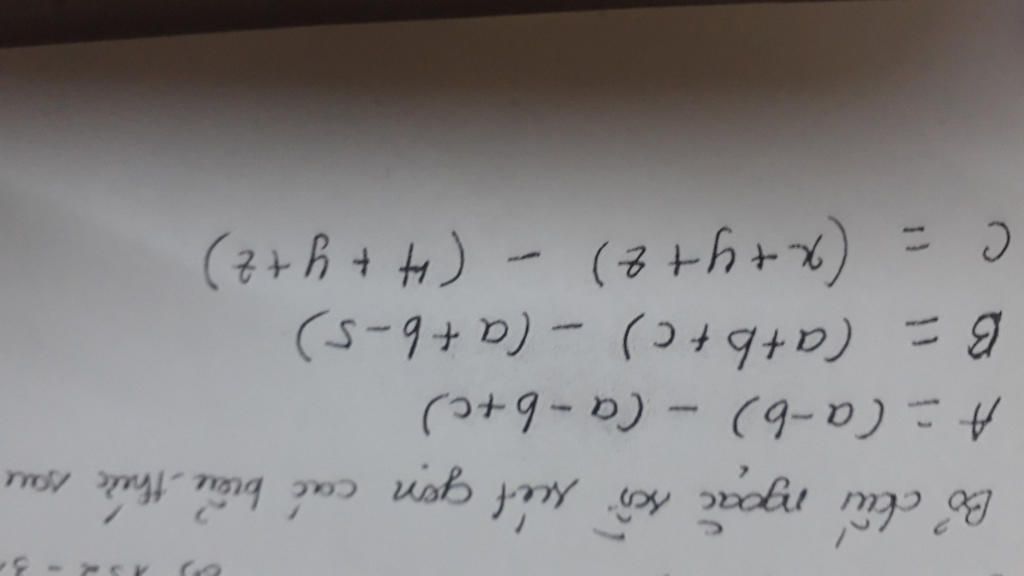 Bỏ dấu ngoặc rồi rút gọn các biểu thức sau
A = (a-b) - (a-b+c)
B = (a+b+c) - (a+b-5)
C = (x+y+z) - (4+y+z)